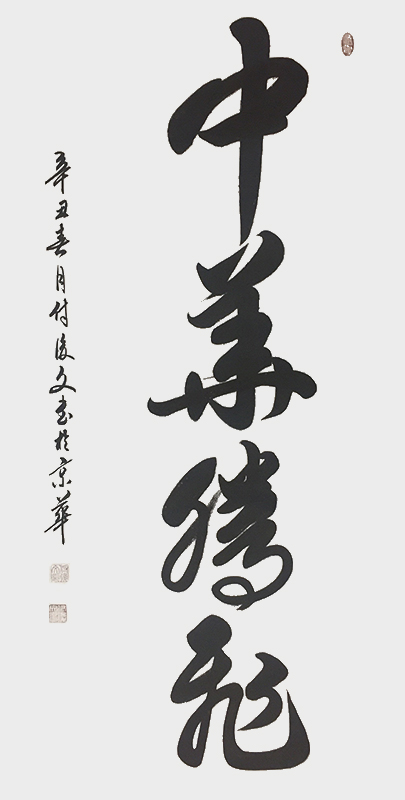 中華騰飛
辛丑春月付俊文书於京華